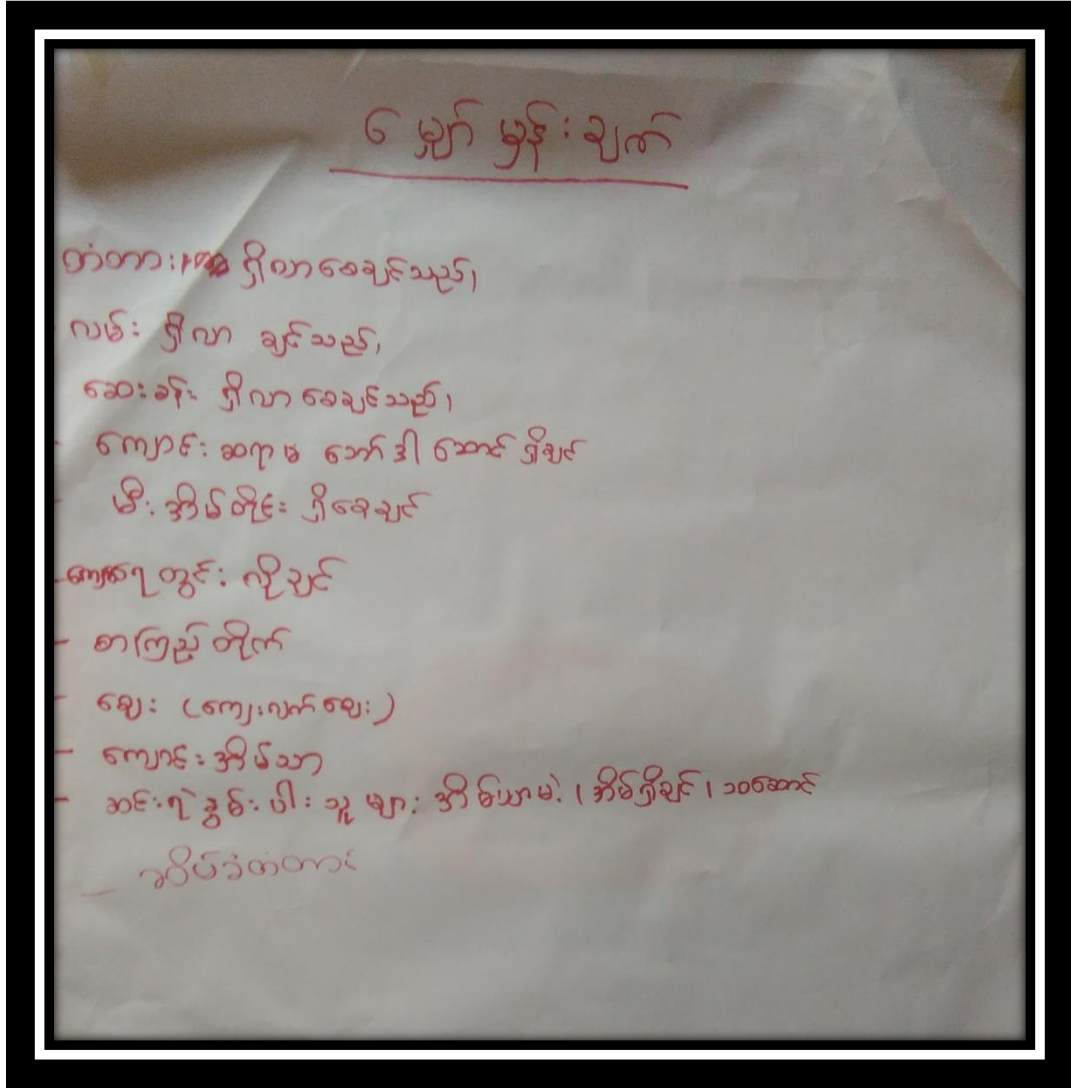 မျှော်မှန်းချက်
တံတား ရှိလာစေချင်သည်၊
လမ်း ရှိလာ ချင်သည်၊
ဆေးခန်း ရှိလာစေချင်သည်၊
- ကျောင်း ဆရာမ ဘော်ဒါ ဆောင် ရှိချင်
- မီး အိမ်တိုင်း ရှိစေချင်
- ရေတွင်း လိုချင်
- စာကြည့်တိုက်
- ဈေး (ကျေးလက်ဈေး)
- ကျောင်းအိမ်သာ
- ဆင်းရဲနွမ်းပါးသူများ အိမ်ယာမဲ့ (အိမ်ရှိချင်၊ ၁၀ဆောင်